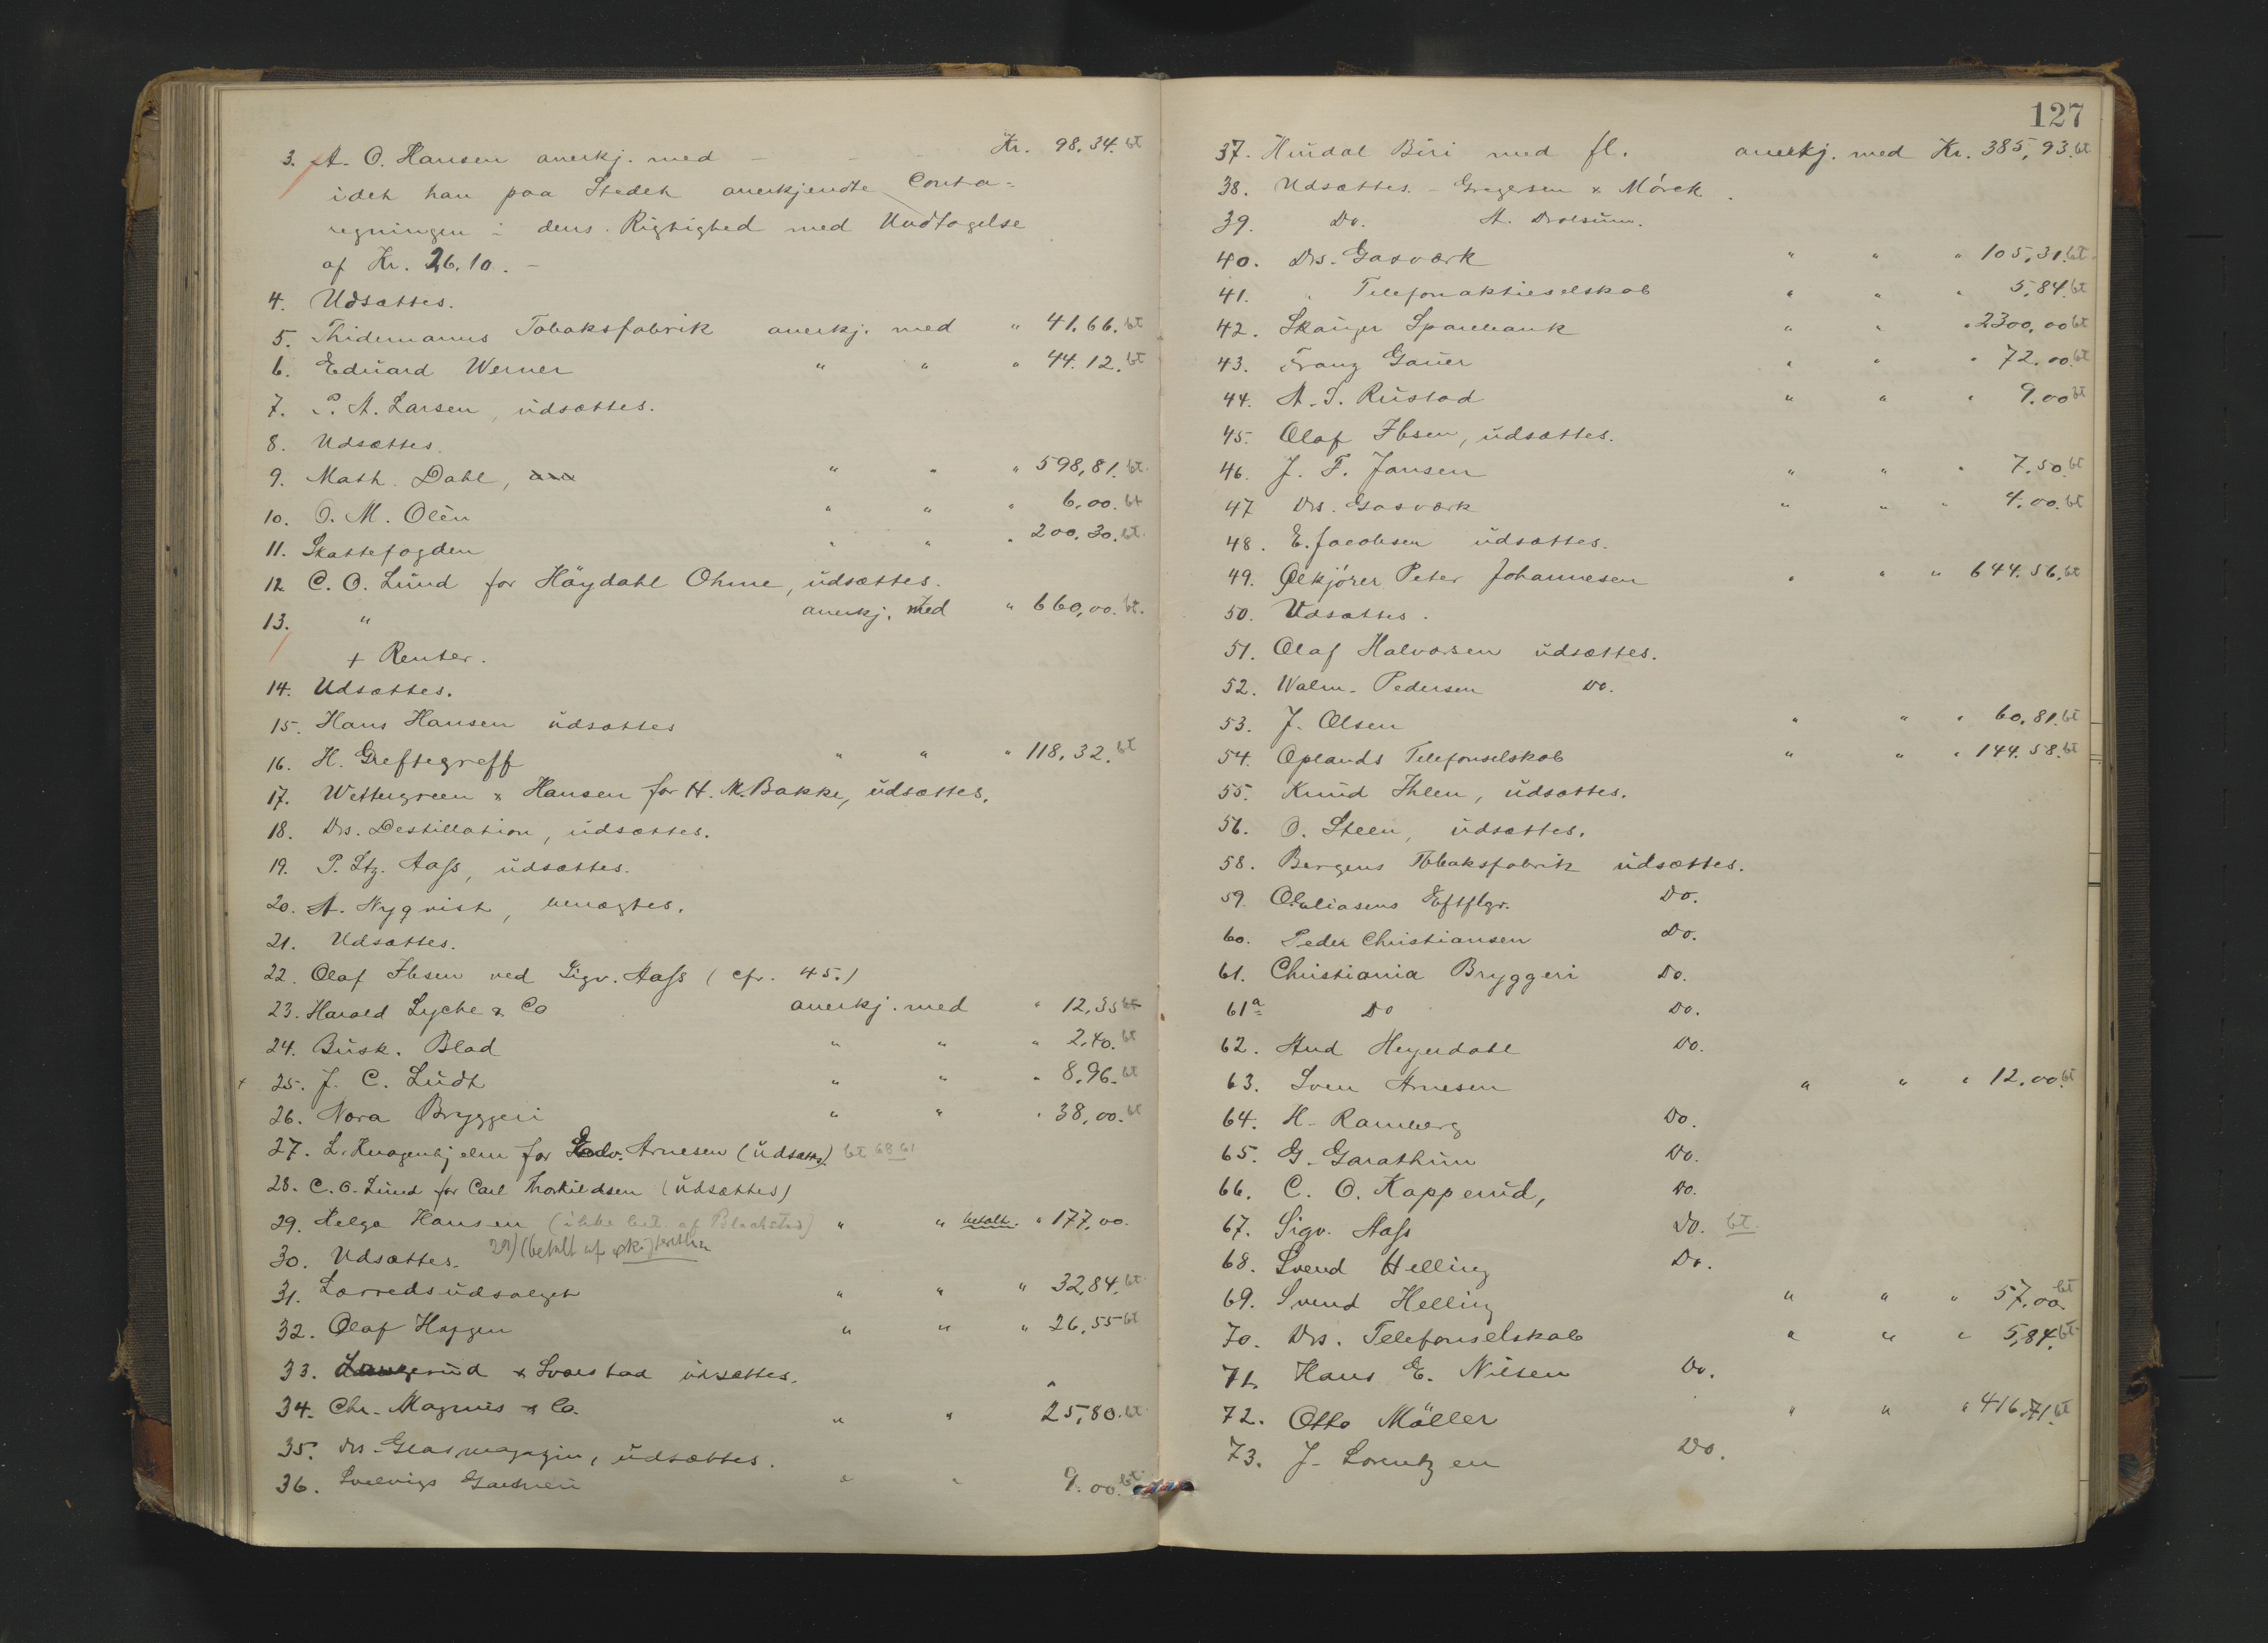 3. A. O. Hansen anerkj. med - - - Kr. 98,34. bt
idet han paa Stedet anerkjendte Contra=
regningen i dens Rigtighed med Undtagelse
af Kr. 26.10. -
4. Udsættes.
5. Thidemanns Tobaksfabrik anerkj. med " 41.66. bt
6. Eduard Werner " " " 44.12. bt
7. P. A. Larsen, udsættes.
8. Udsættes.
9. Math. Dahl, " " " 598,81. bt.
10. O. M. Olén " " " 6,00. bt
11. Skattefogden " " " 200,30. bt.
12. C. O. Lund for Höydahl Ohme, udsættes.
13. " anerkj. med " 660,00. bt.
+ Renter.
14. Udsættes.
15. Hans Hansen udsættes
16. H. Greftegreff " " " 118,32. bt
17. Wettergreen & Hansen for H. M. Bakke, udsættes.
18. Drs. Destillation, udsættes.
19. P. Ltz. Aass, udsættes.
20. A. Nyqvist, benægtes.
21. Udsættes.
22. Olaf Ibsen ved Sigv. Aass (cfr. 45.)
23. Harald Lyche & Co anerkj. med " 12,35 bt
24. Busk. Blad " " " 2,40. bt
+ 25. J. C. Ludt " " " 8,96. bt
26. Nora Bryggeri " " " 38,00. bt
27. L. Knagenhjelm for Edv. Arnesen (udsættes). bt 68 61
28. C. O. Lund for Carl Thorkildsen (udsættes)
29. Helga Hansen (ikke bet. af Blackstad) " " betalt. " 177,00.
29) (betalt af
30. Udsættes.
31. Lærredsudsalget " " " 32,84. bt
32. Olaf Haggen " " " 26,55 bt
33. Langerud & Svarstad udsættes.
34. Chr. Magnus & Co. " " " 25,80. bt
35. Drs. Glasmagazin, udsættes.
36. Svelvigs Garveri " " 9.00. bt
127
37. Hundal Biri med fl. anerkj. med Kr. 385,93. bt
38. Udsættes. - Gregersen & Mörck.
39. Do. A. Drolsum.
40. Drs. Gasværk " " " 105,31. bt
41. " Telefonaktieselskab " " " 5,84. bt
42. Skauger Sparebank " " " 2300,00 bt
43. Franz Gauer " " " 72.00. bt
44. A. S. Rustad " " " 9.00 bt
45. Olaf Ibsen, udsættes.
46. J. F. Jansen " " " 7.50. bt
47 Drs. Gasværk " " " 4,00. bt
48. E. Jacobsen udsættes.
49. Ølkjörer Peter Johannesen " " " 644.56. bt
50. Udsættes.
51. Olaf Halvorsen udsættes.
52. Walm. Pedersen Do.
53. J. Olsen " " " 60,81. bt
54. Oplands Telefonselskab " " " 144.58. bt
55. Knud Ihlen, udsættes.
56. O. Steen, udsættes.
58. Bergens Tobaksfabrik udsættes.
59. Eftflgr. Do.
60. Peder Christiansen Do.
61. Christiania Bryggeri Do.
61a Do Do.
62. And Heyerdahl Do.
63. Sven Arnesen " " " 12,00. bt
64. H. Ramberg Do.
65. G. Garathun Do.
66. C. O. Kapperud, Do.
67. Sigv. Aass Do. bt.
68. Svend Helling Do.
69. Svend Helling " " " 57,00. bt
70. Drs. Telefonselskab " " " 5,84. bt
71. Hans E. Nilsen Do.
72. Otto Möller " " " 416,71. bt
73. J. Lorentzen Do.